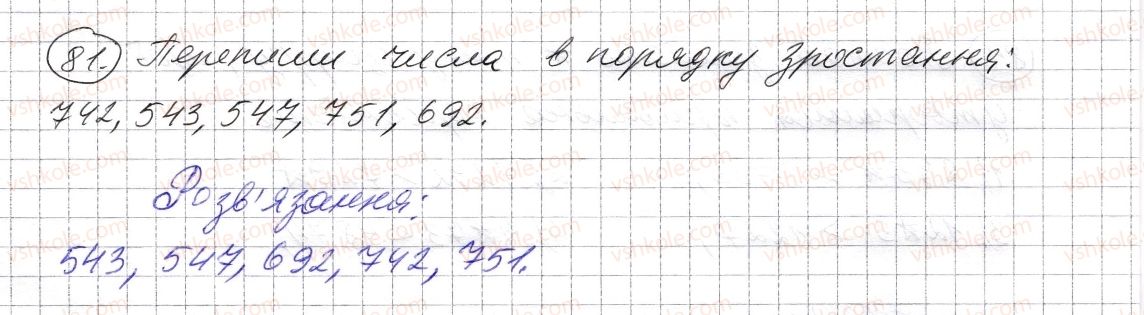 81. Перепиши числа в порядку зростання:
742, 543, 547, 751, 692.
Розв'язання:
543, 547, 692, 742, 751.